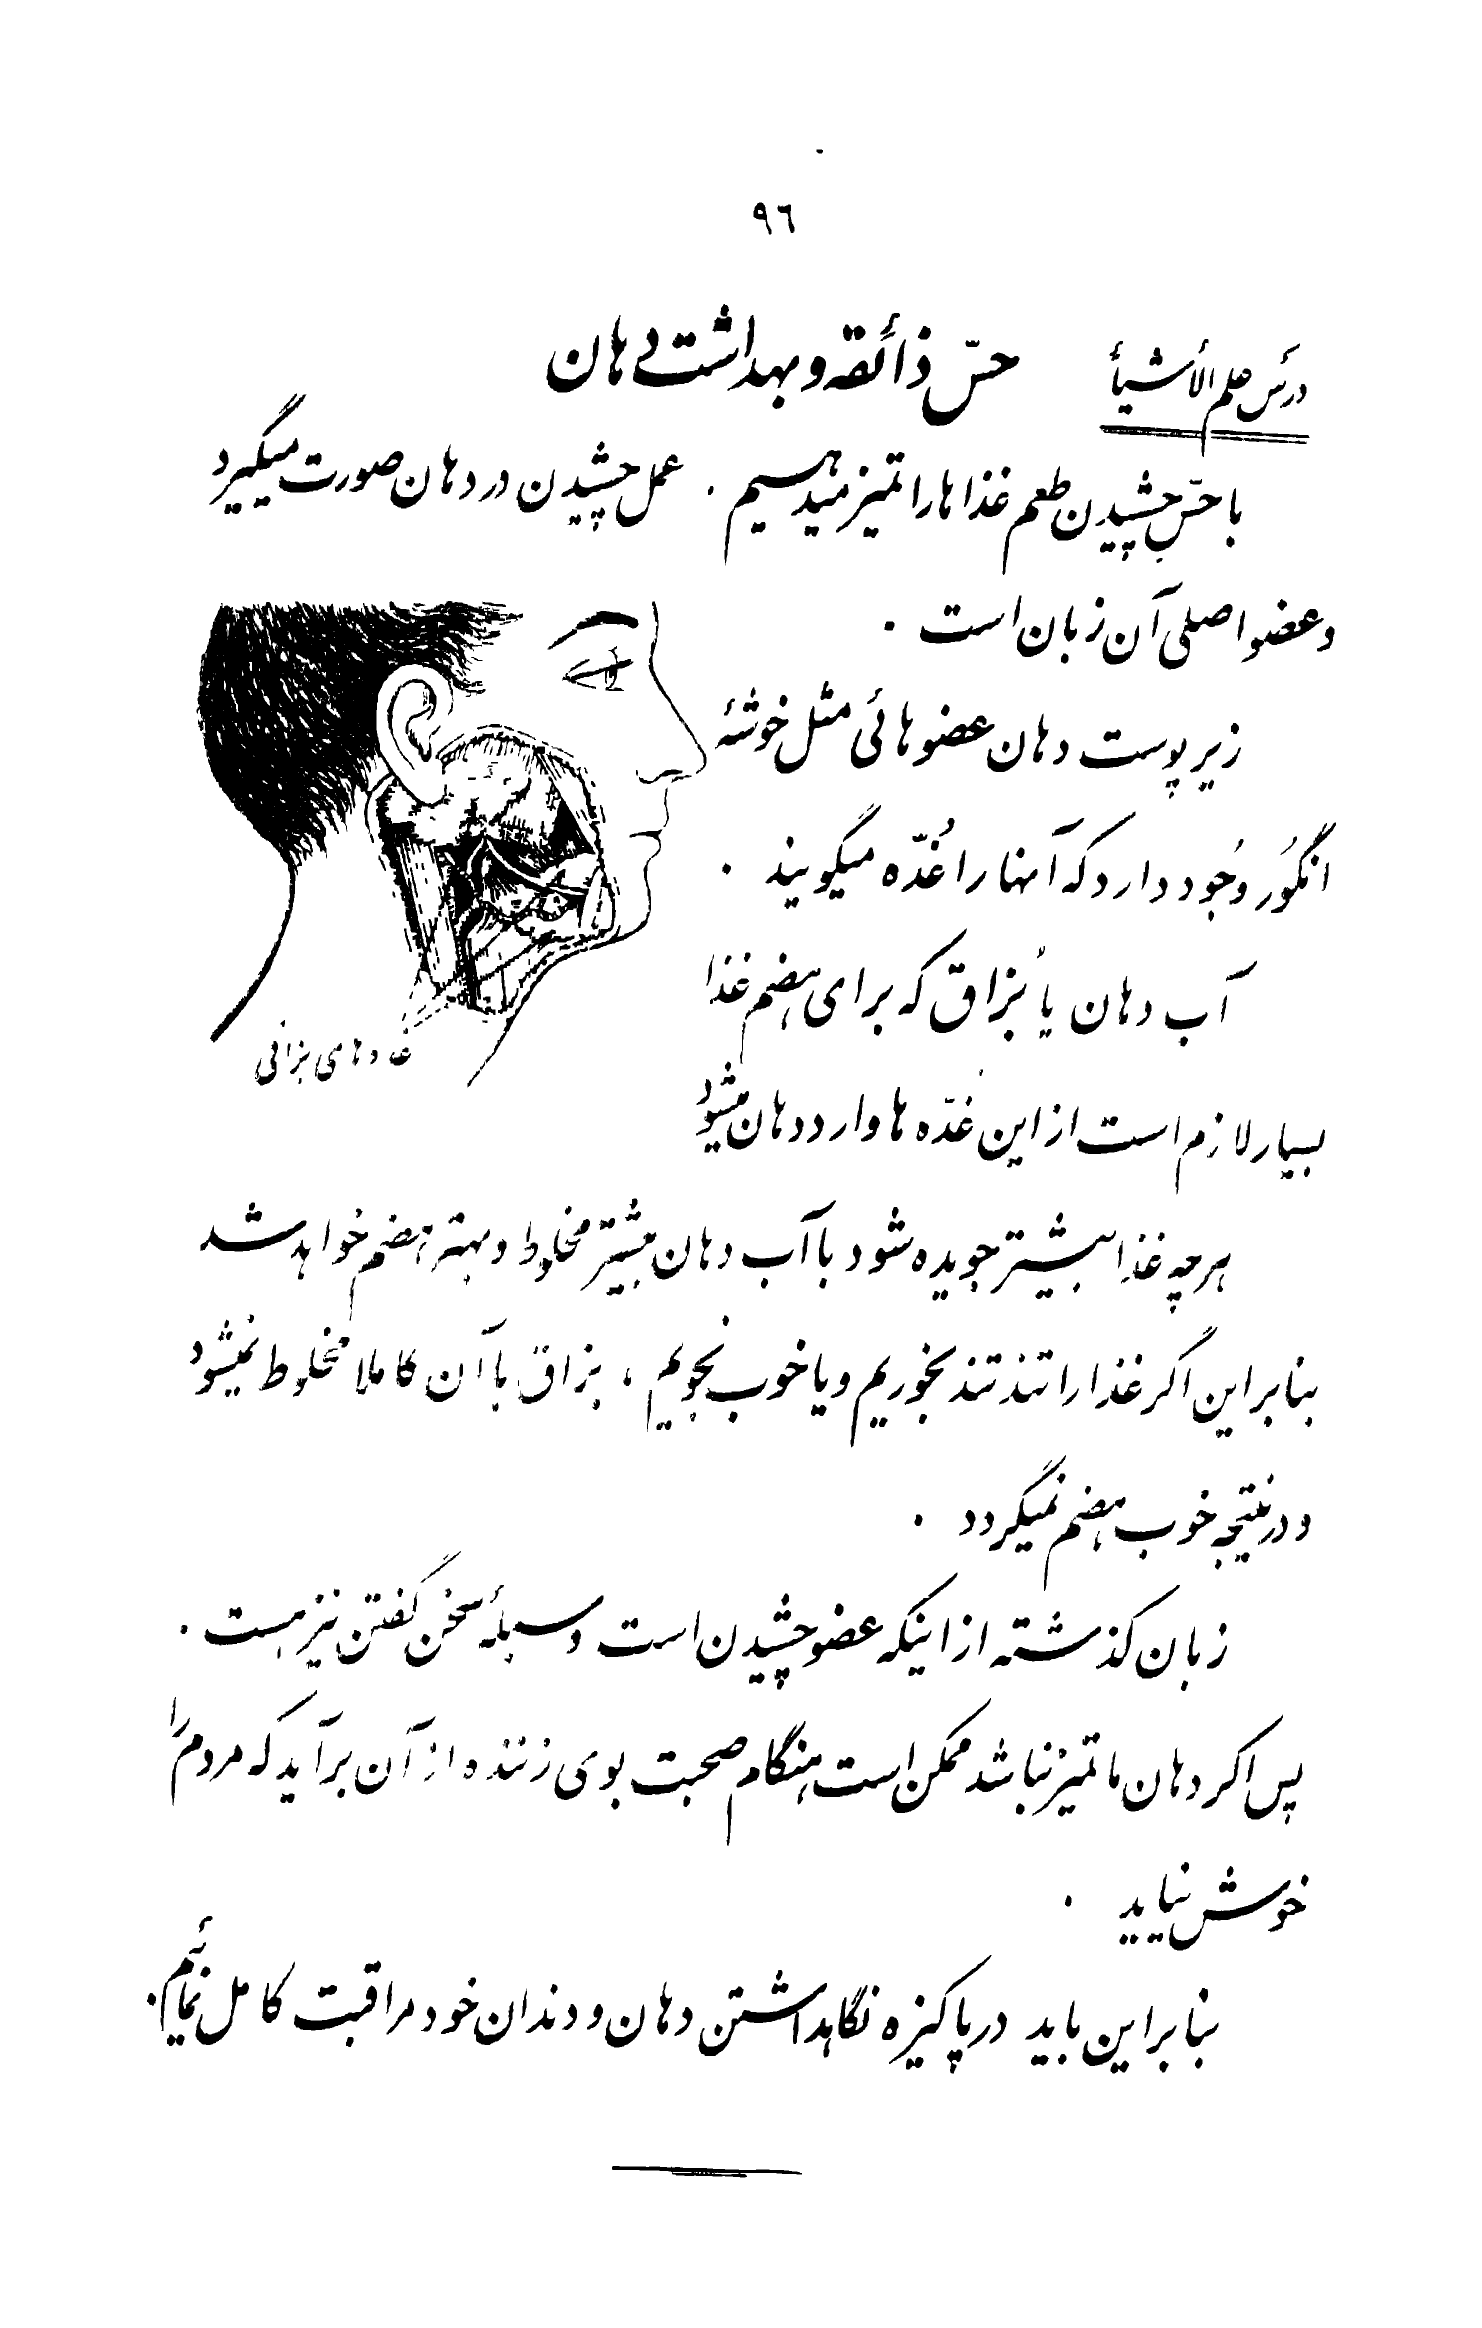 ٩٦
درس علم الأشیأ
حسّ ذائقه و بهداشت دهان
با حسّ چشیدن طعم غذا ها را تمیز میدهیم . عمل چشیدن در دهان صورت میگیرد
و عضو اصلی آن زبان است .
زیر پوست دهان عضو هائی مثل خوشهٔ
انگُور وجُود دارد که آنها را غُدّه میگویند .
آب دهان یا بُزاق که برای هضم غذا
بسیار لازم است از این غدّه ها وارد دهان میشود
غده های بزاقی
هر چه غذا بیشتر جویده شود با آب دهان بیشتر مخلوط و بهتر هضم خواهد شد
بنابر این اگر غذا را تند تند بخوریم و یا خوب نجویم ، بزاق با آن کاملا مخلوط نمیشود
و در نتیجه خوب هضم نمیگردد .
زبان گذشته از اینکه عضو چشیدن است وسیلهٔ سخن گفتن نیز هست .
پس اگر دهان ما تمیز نباشد ممکن است هنگام صحبت بوی زننده از آن بر آید که مردم را
خوش نیاید .
بنابر این باید در پاکیزه نگاهداشتن دهان و دندان خود مراقبت کامل نمائیم .